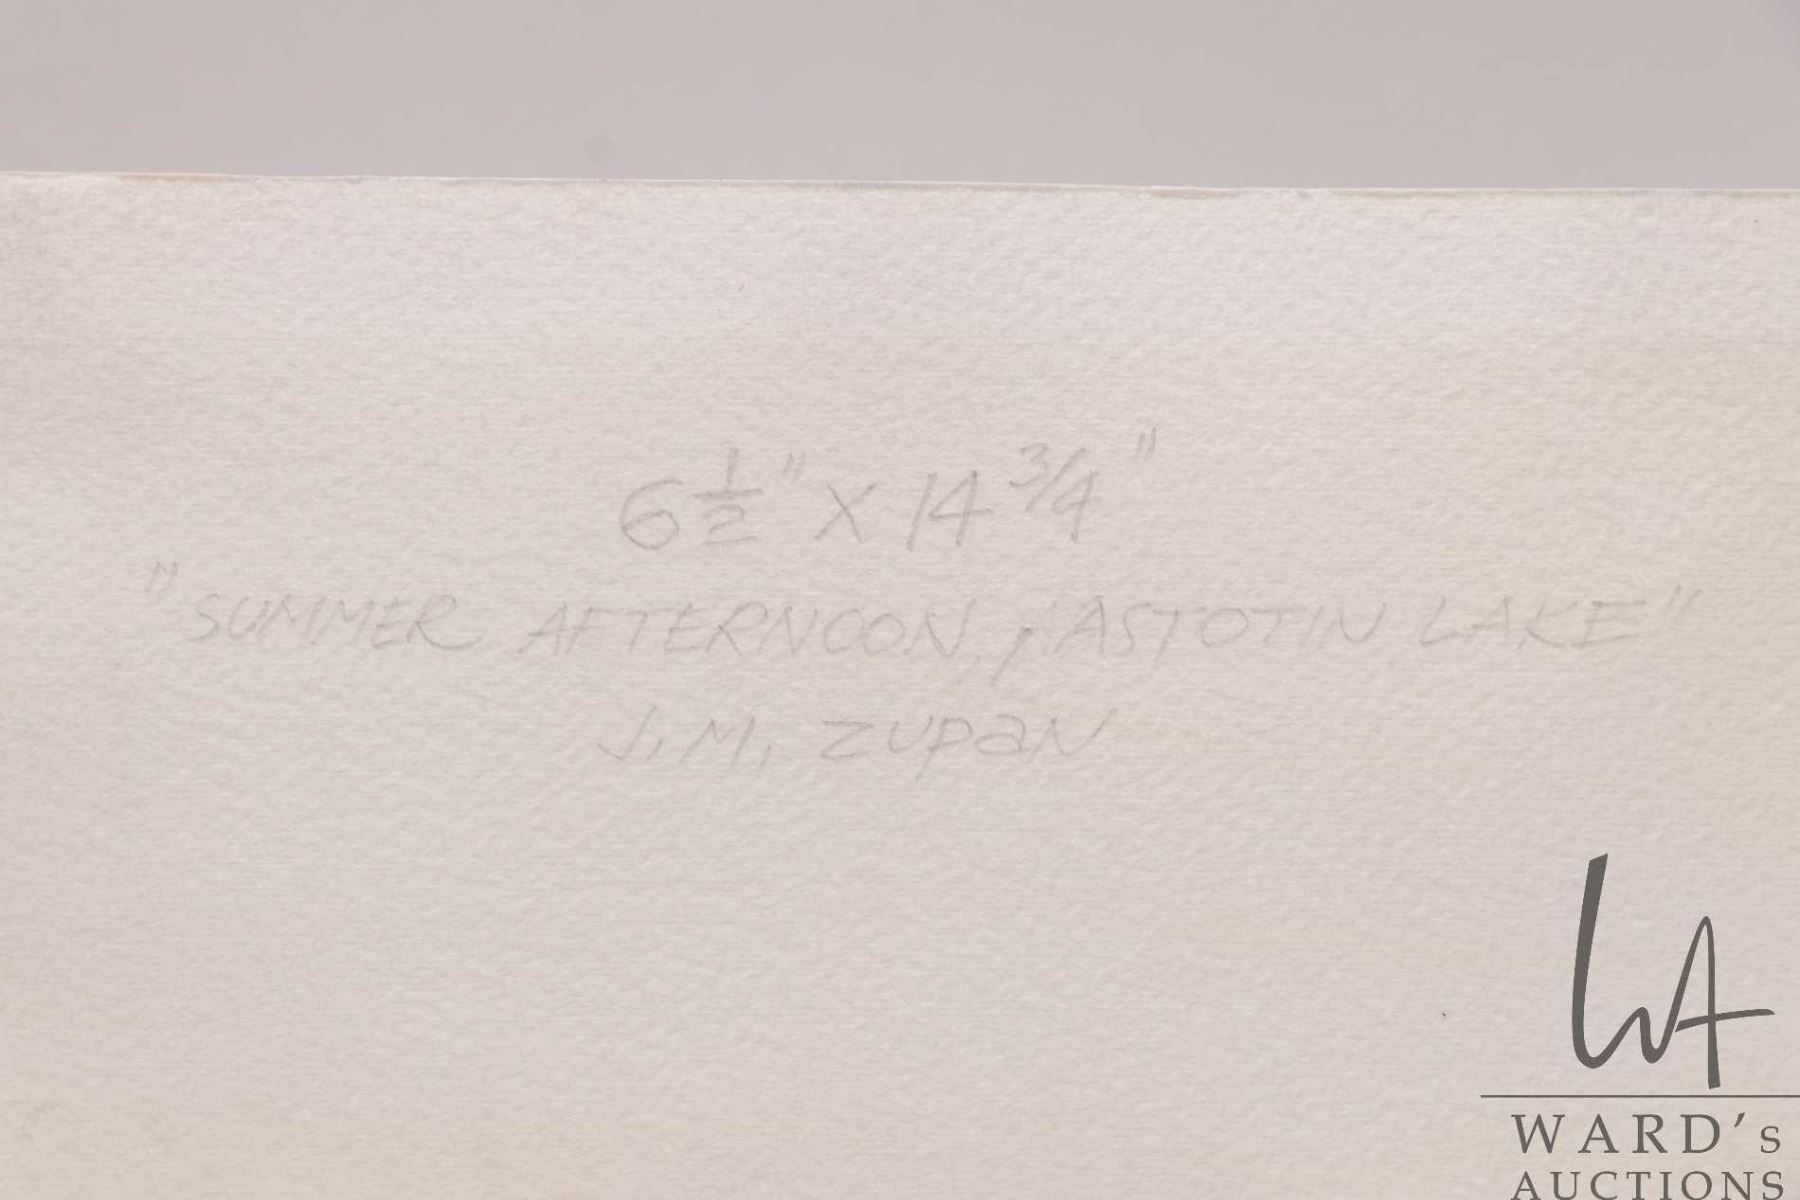 6 1/2" X 14 3/4"
"SUMMER AFTERNOON, ASTOTIN LAKE"
J.M. ZUPAN
WA
WARD's
AUCTIONS